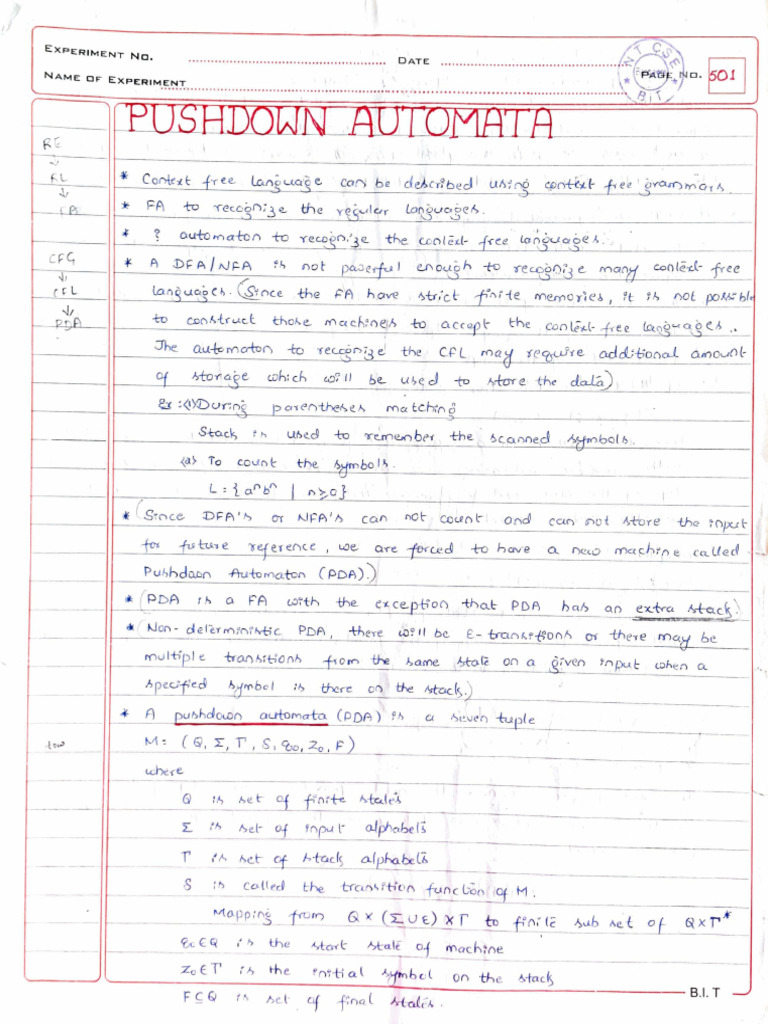 EXPERIMENT NO. DATE
NAME OF EXPERIMENT PAGE NO. 501
NT CSE
BIT
PUSHDOWN AUTOMATA
RE
RL
FA
CFG
CFL
PDA
* Context free language can be described using context free grammars.
* FA to recognize the regular languages.
* ? automaton to recognize the context-free languages.
* A DFA/NFA is not powerful enough to recognize many context free
languages. (Since the FA have strict finite memories, it is not possible
to construct those machines to accept the context-free languages..
The automaton to recognize the CFL may require additional amount
of storage which will be used to store the data)
Ex:(1) During parentheses matching
Stack is used to remember the scanned symbols.
(2) To count the symbols.
L = {aⁿbⁿ | n≥0}
* (Since DFA's or NFA's can not count and can not store the input
for future reference, we are forced to have a new machine called
Pushdown Automaton (PDA).)
* (PDA is a FA with the exception that PDA has an extra stack.)
* (Non-deterministic PDA, there will be ε-transitions or there may be
multiple transitions from the same state on a given input when a
specified symbol is there on the stack.)
* A pushdown automata (PDA) is a seven tuple
M = (Q, Σ, Γ, δ, q₀, Z₀, F)
where
Q is set of finite states
Σ is set of input alphabets
Γ is set of stack alphabets
δ is called the transition function of M.
Mapping from Q × (Σ ∪ ε) × Γ to finite sub set of Q×Γ*
q₀∈Q is the start state of machine
Z₀∈Γ is the initial symbol on the stack
F⊆Q is set of final states.
B.I.T